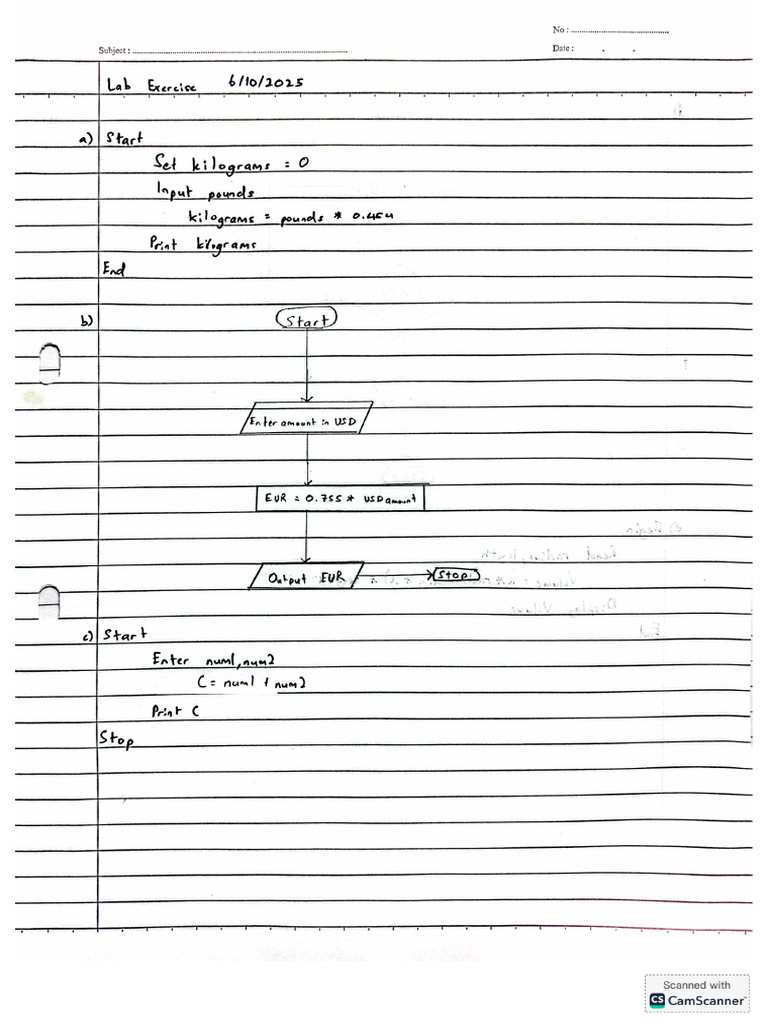 No :
Subject :
Date :
Lab Exercise 6/10/2025
a) Start
Set kilograms = 0
Input pounds
kilograms = pounds * 0.454
Print kilograms
End
b)
Start
Enter amount in USD
EUR = 0.755 * USD amount
Output EUR
Stop
c) Start
Enter num1, num2
C = num1 + num2
Print C
Stop
Scanned with
CS CamScanner